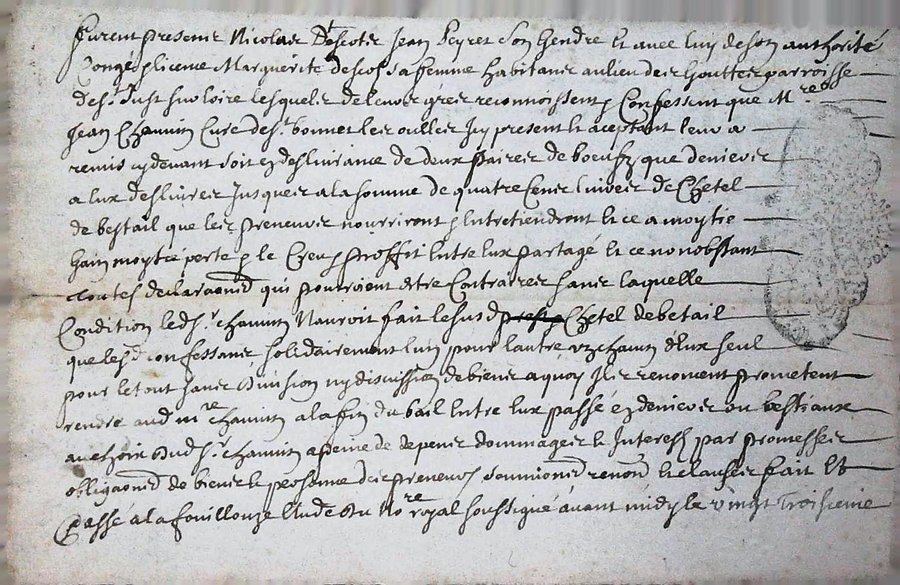 furent presents Nicolas Descotes Jean Peyret son gendre et avec luy de son authorité
Congé et licence Marguerite descos sa femme habitants au lieu des Gouttes parroisse
de St Just sur loire lesquels de leurs grés reconnoissent et Confessent que Mre
Jean Chammin Curé de St bonnet les oulles Icy present et aceptant leur a
remis cy devant soit en deslivrance de deux paires de boeufs que deniers
a eux deslivres Jusques a la somme de quatre Cents livres de Chetel
de bestail que les preneurs nourriront et Entretiendront et ce a moytie
gain moytié perte et le Creu et proffit Entre eux partagé et ce nonobstant
toutes declaraons qui pourroient etre Contraires sans laquelle
Condition led sr chammin N'auroit fait le susd Chetel de betail
que lesd confessants solidairement l'un pour l'autre un chacun d'eux seul
pour le tout sans division ny discussion de biens a quoy Ils renoncent prometent
rendre aud mre Chammin a la fin du bail Entre eux passé en deniers ou bestiaux
au choix dud sr chammin a peine de depens dommages et Interest par promesses
obligaons de biens et personne des preneurs soumions renons et clauses fait Et
Passé a la fouillouze Etude du No re royal soussigné avant midy le vingt troisieme